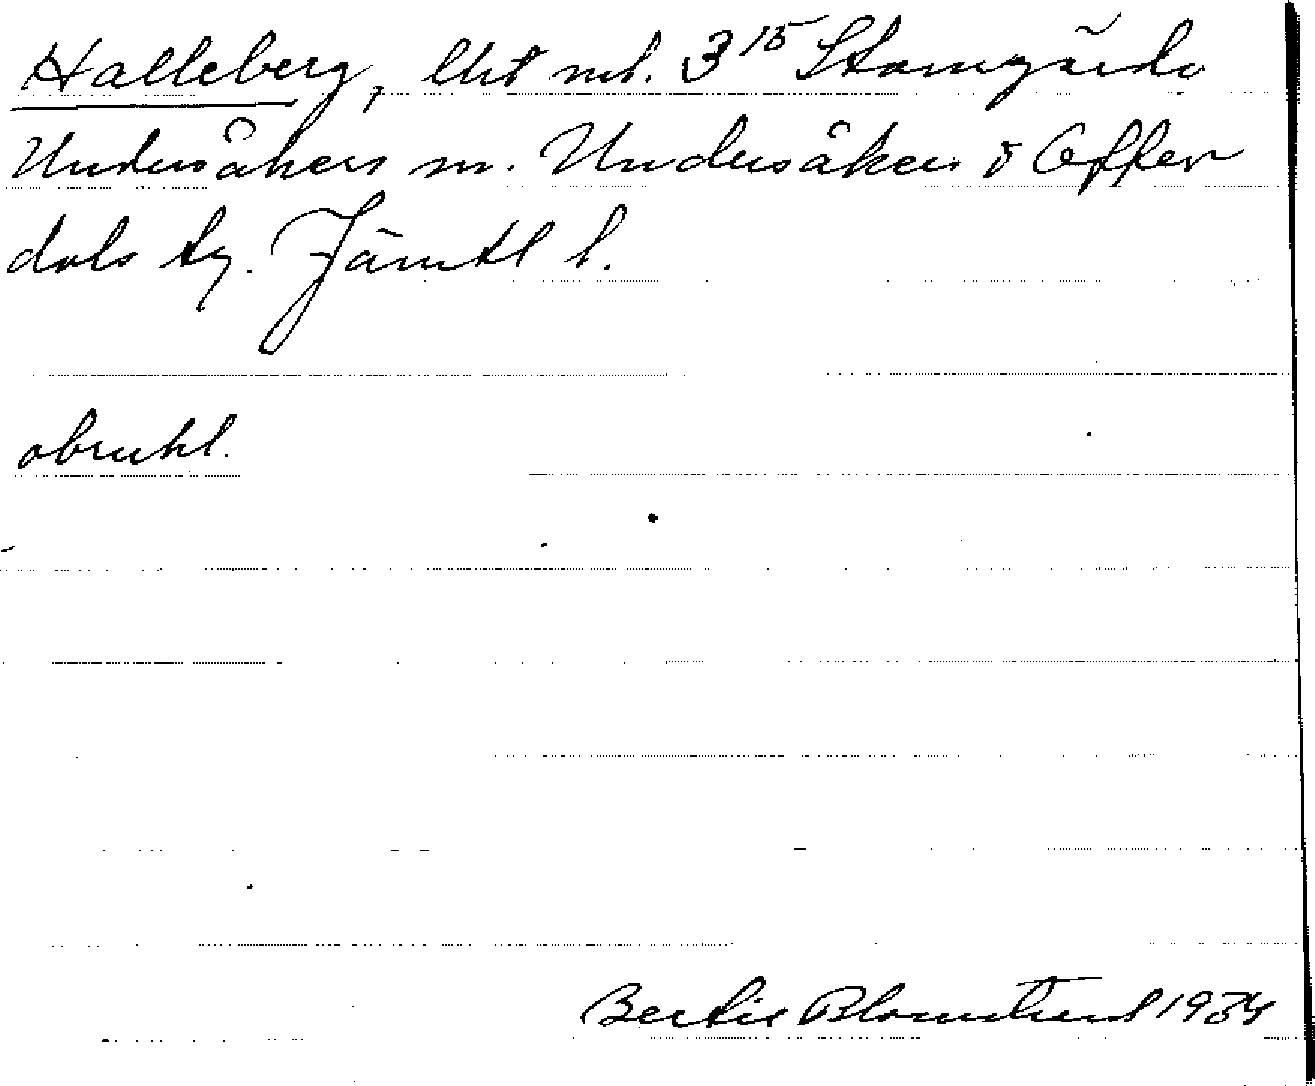 Halleberg, lht nr 1. 3¹⁵ Stamgärde
Undersåkers sn. Undersåkers o Offer
dals tg. Jämtl l.
obruhl.
Bertil Blomstrand 1934